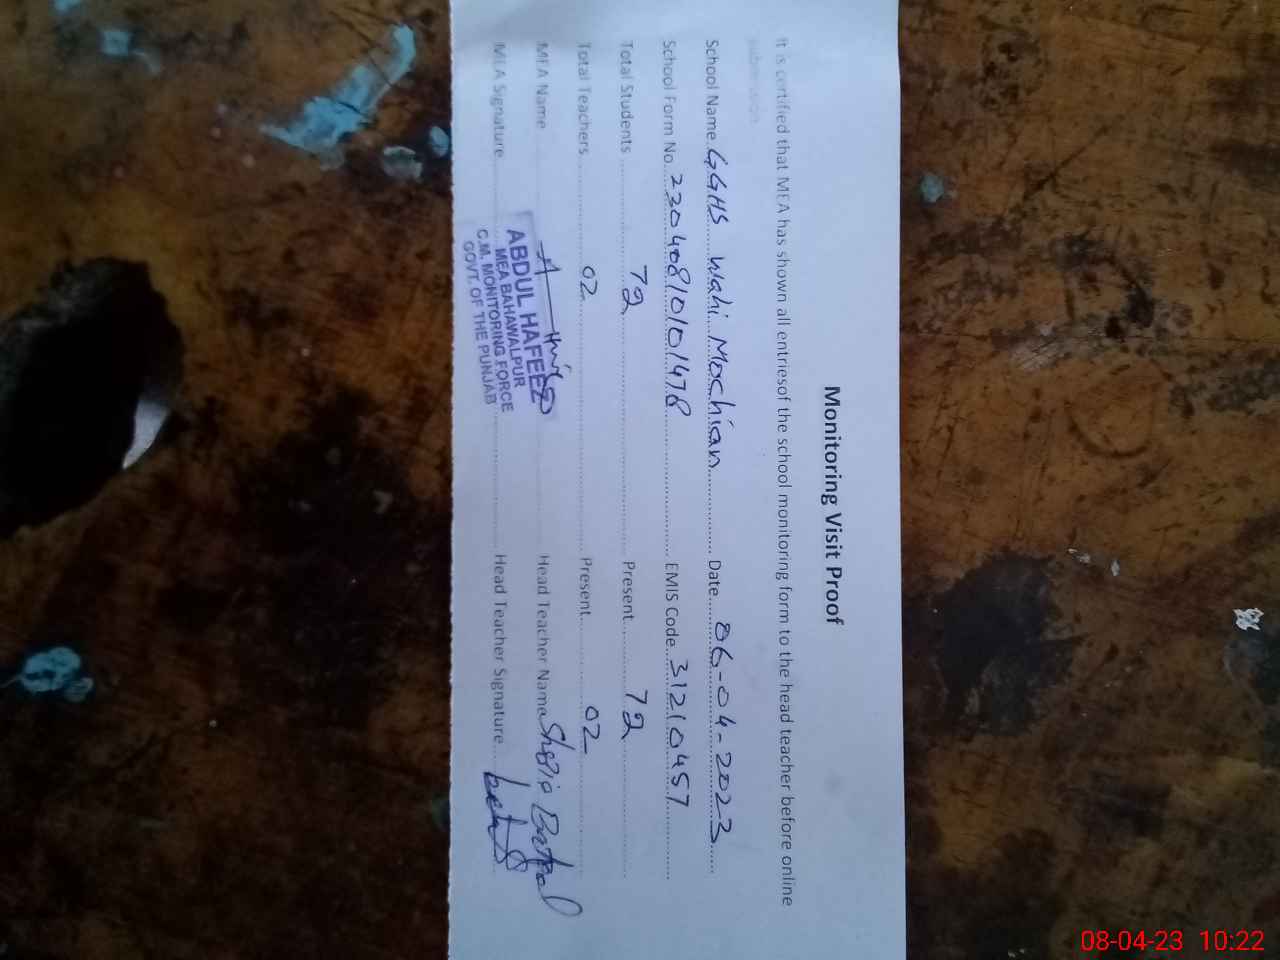 Monitoring Visit Proof
It is certified that MEA has shown all entriesof the school monitoring form to the head teacher before online
submission
School Name GGHS Wahi Mochian Date 06-04-2023
School Form No. 2304081010101478 EMIS Code 31210457
Total Students 72 Present 72
Total Teachers 02 Present 02
MEA Name Head Teacher Name Batool
MEA Signature Head Teacher Signature
ABDUL HAFEEZ
MEA BAHAWALPUR
C.M. MONITORING FORCE
GOVT. OF THE PUNJAB
08-04-23 10:22